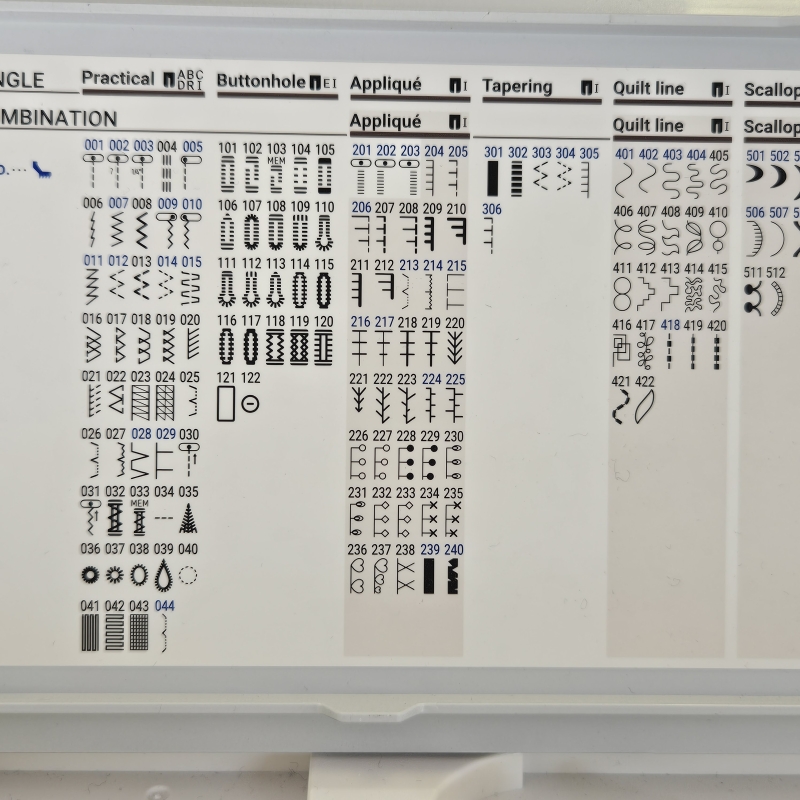 NGLE Practical ABC DRI Buttonhole E I Appliqué I Tapering I Quilt line I Scallop
MBINATION Appliqué I Quilt line I Scallop
001 002 003 004 005 101 102 103 104 105 201 202 203 204 205 301 302 303 304 305 401 402 403 404 405 501 502 5
MEM
o.…
006 007 008 009 010 106 107 108 109 110 206 207 208 209 210 306 406 407 408 409 410 506 507 5
011 012 013 014 015 111 112 113 114 115 211 212 213 214 215 411 412 413 414 415 511 512
016 017 018 019 020 116 117 118 119 120 216 217 218 219 220 416 417 418 419 420
021 022 023 024 025 121 122 221 222 223 224 225 421 422
026 027 028 029 030 226 227 228 229 230
031 032 033 034 035 231 232 233 234 235
MEM
036 037 038 039 040 236 237 238 239 240
041 042 043 044